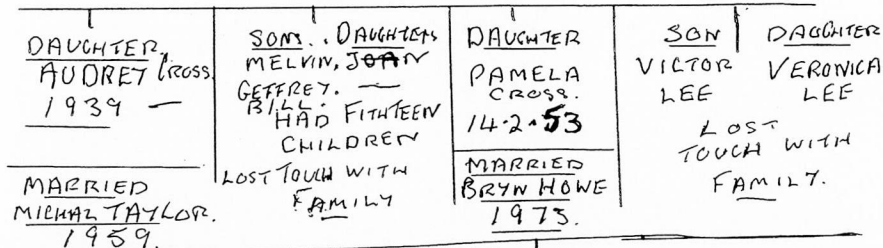 DAUGHTER
AUDREY CROSS.
1939 —
MARRIED
MICHAL TAYLOR.
1959.
SONS.. DAUGHTERS
MELVIN, JOAN
GEFFREY. —
BILL.
HAD FITHTEEN
CHILDREN
LOST TOUCH WITH
FAMILY
DAUGHTER
PAMELA
CROSS.
14.2.53
MARRIED
BRYN HOWE
1975.
SON
VICTOR
LEE
DAUGHTER
VERONICA
LEE
LOST
TOUCH WITH
FAMILY.